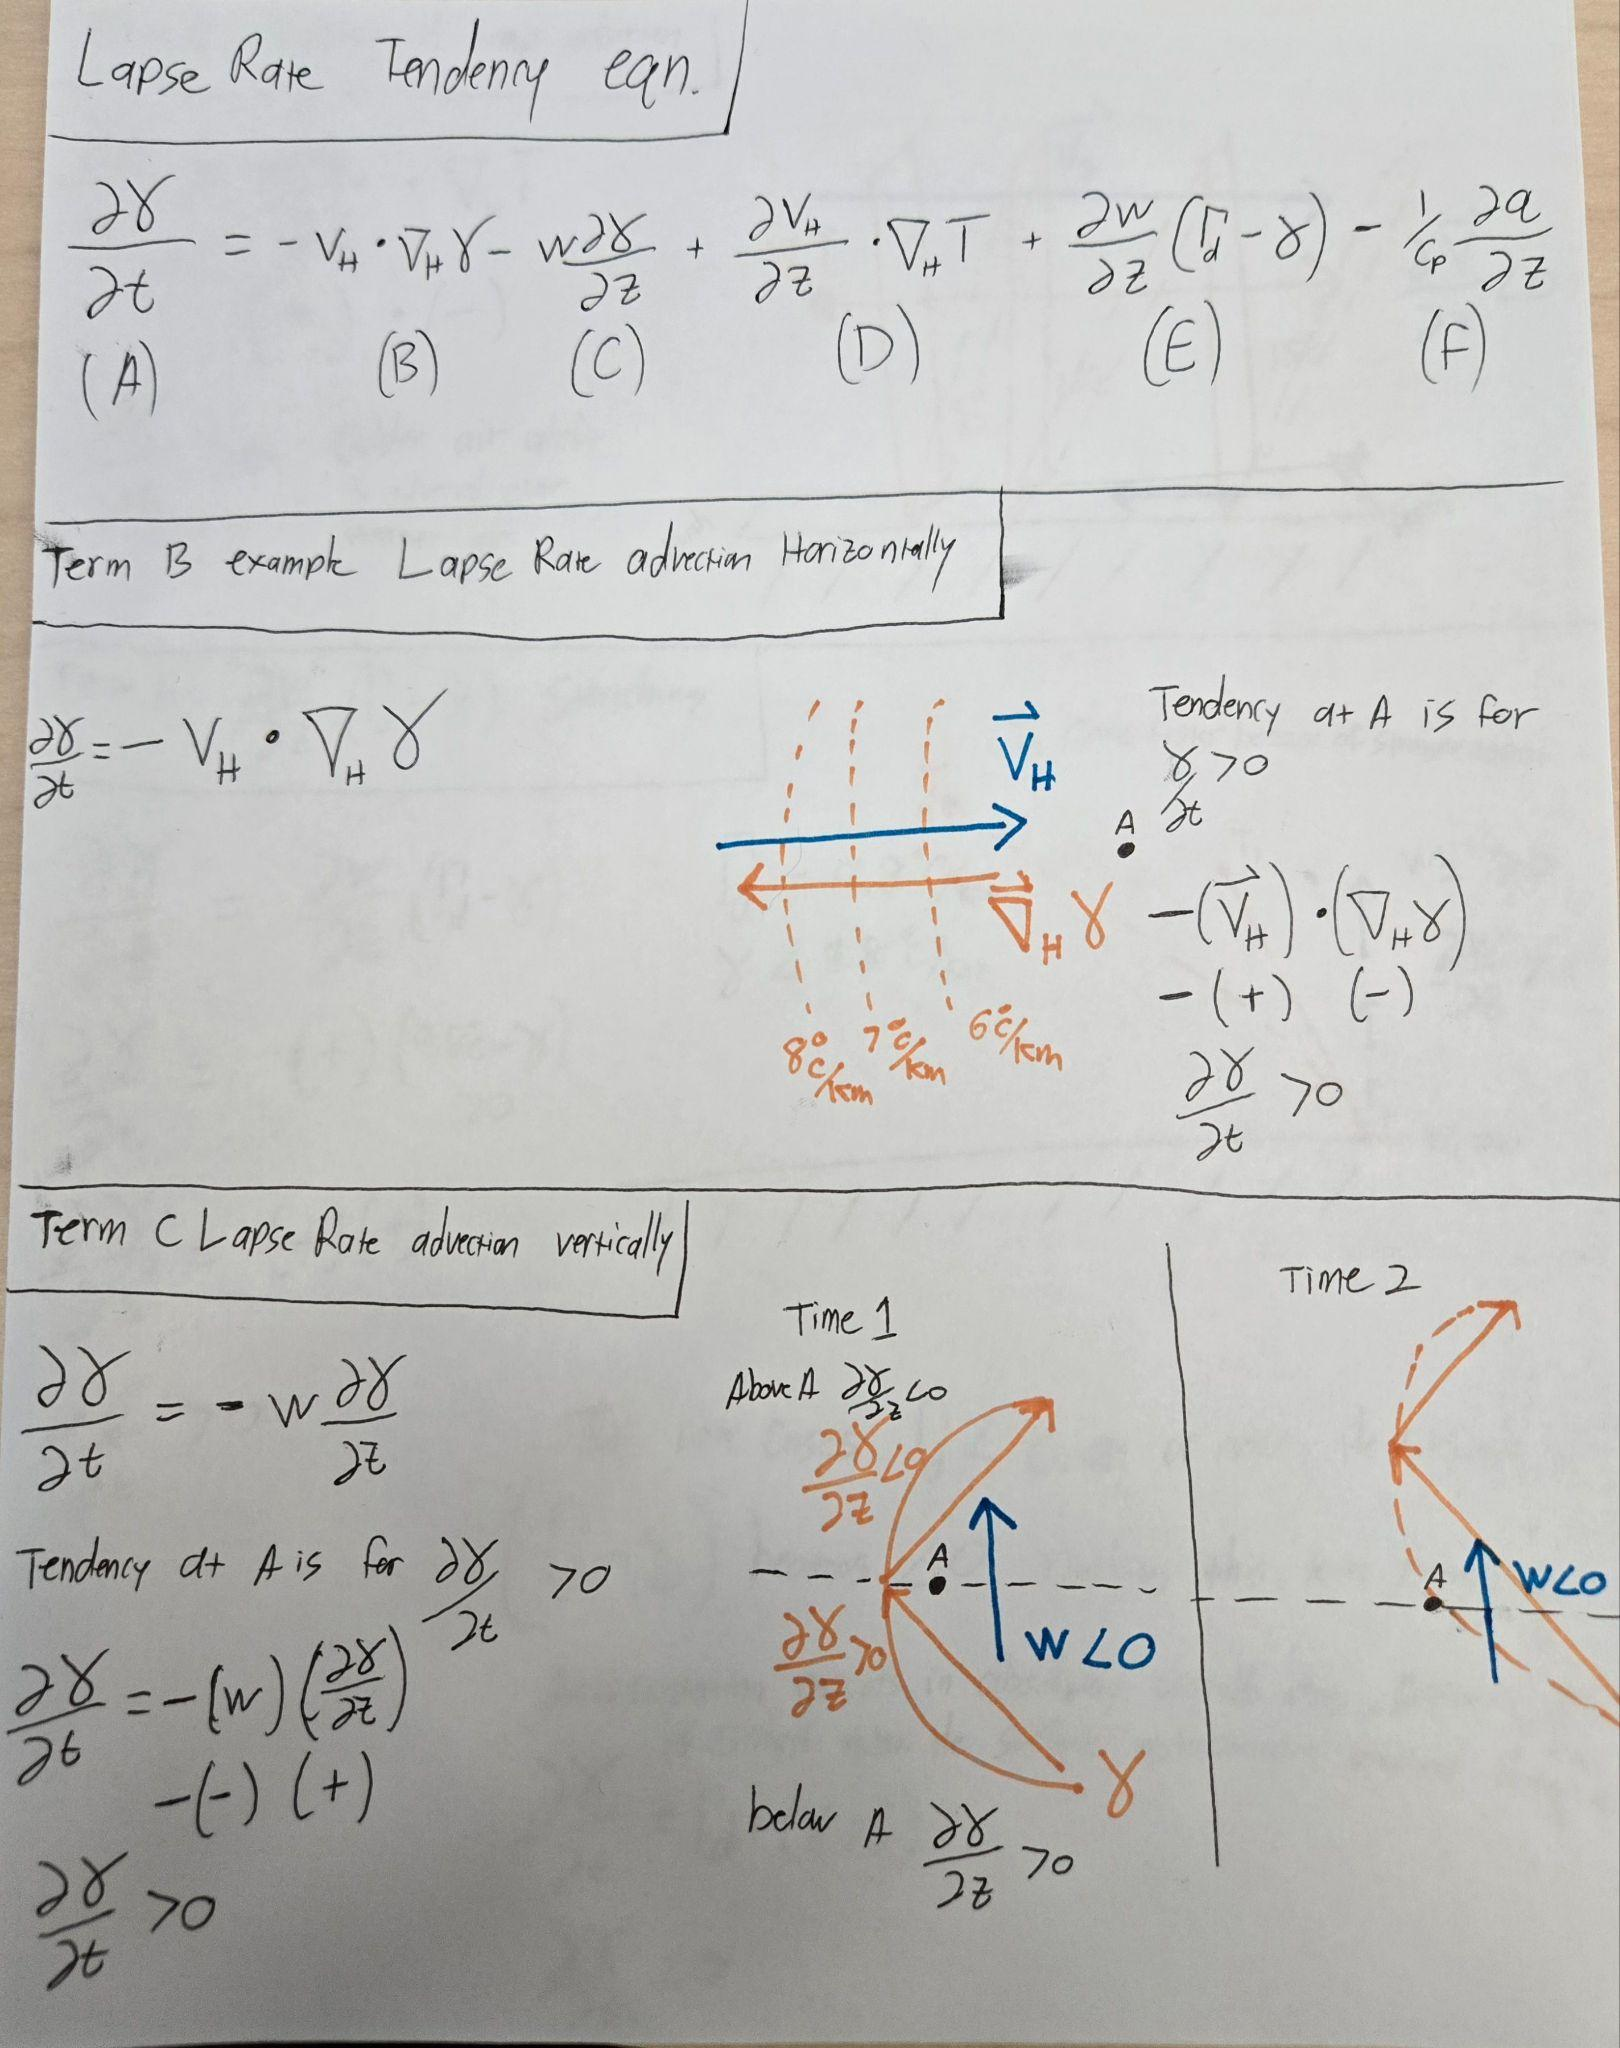 Lapse Rate Tendency eqn.
∂γ/∂t = - V_H · ∇_H γ - w ∂γ/∂z + ∂V_H/∂z · ∇_H T + ∂w/∂z (Γ_d - γ) - 1/Cp ∂q/∂z
(A) (B) (C) (D) (E) (F)
Term B example Lapse Rate advection Horizontally
∂γ/∂t = - V_H · ∇_H γ
V_H
∇_H γ
8°C/km 7°C/km 6°C/km
A
Tendency at A is for
γ/∂t >0
-(V_H) · (∇_H γ)
-(+) (-)
∂γ/∂t >0
Term C Lapse Rate advection vertically
∂γ/∂t = - w ∂γ/∂z
Tendency at A is for ∂γ/∂t >0
∂γ/∂t = -(w) (∂γ/∂z)
-(-) (+)
∂γ/∂t >0
Time 1
Above A ∂γ/∂z <0
∂γ/∂z <0
A
∂γ/∂z >0
W<0
γ
below A ∂γ/∂z >0
Time 2
A
W<0